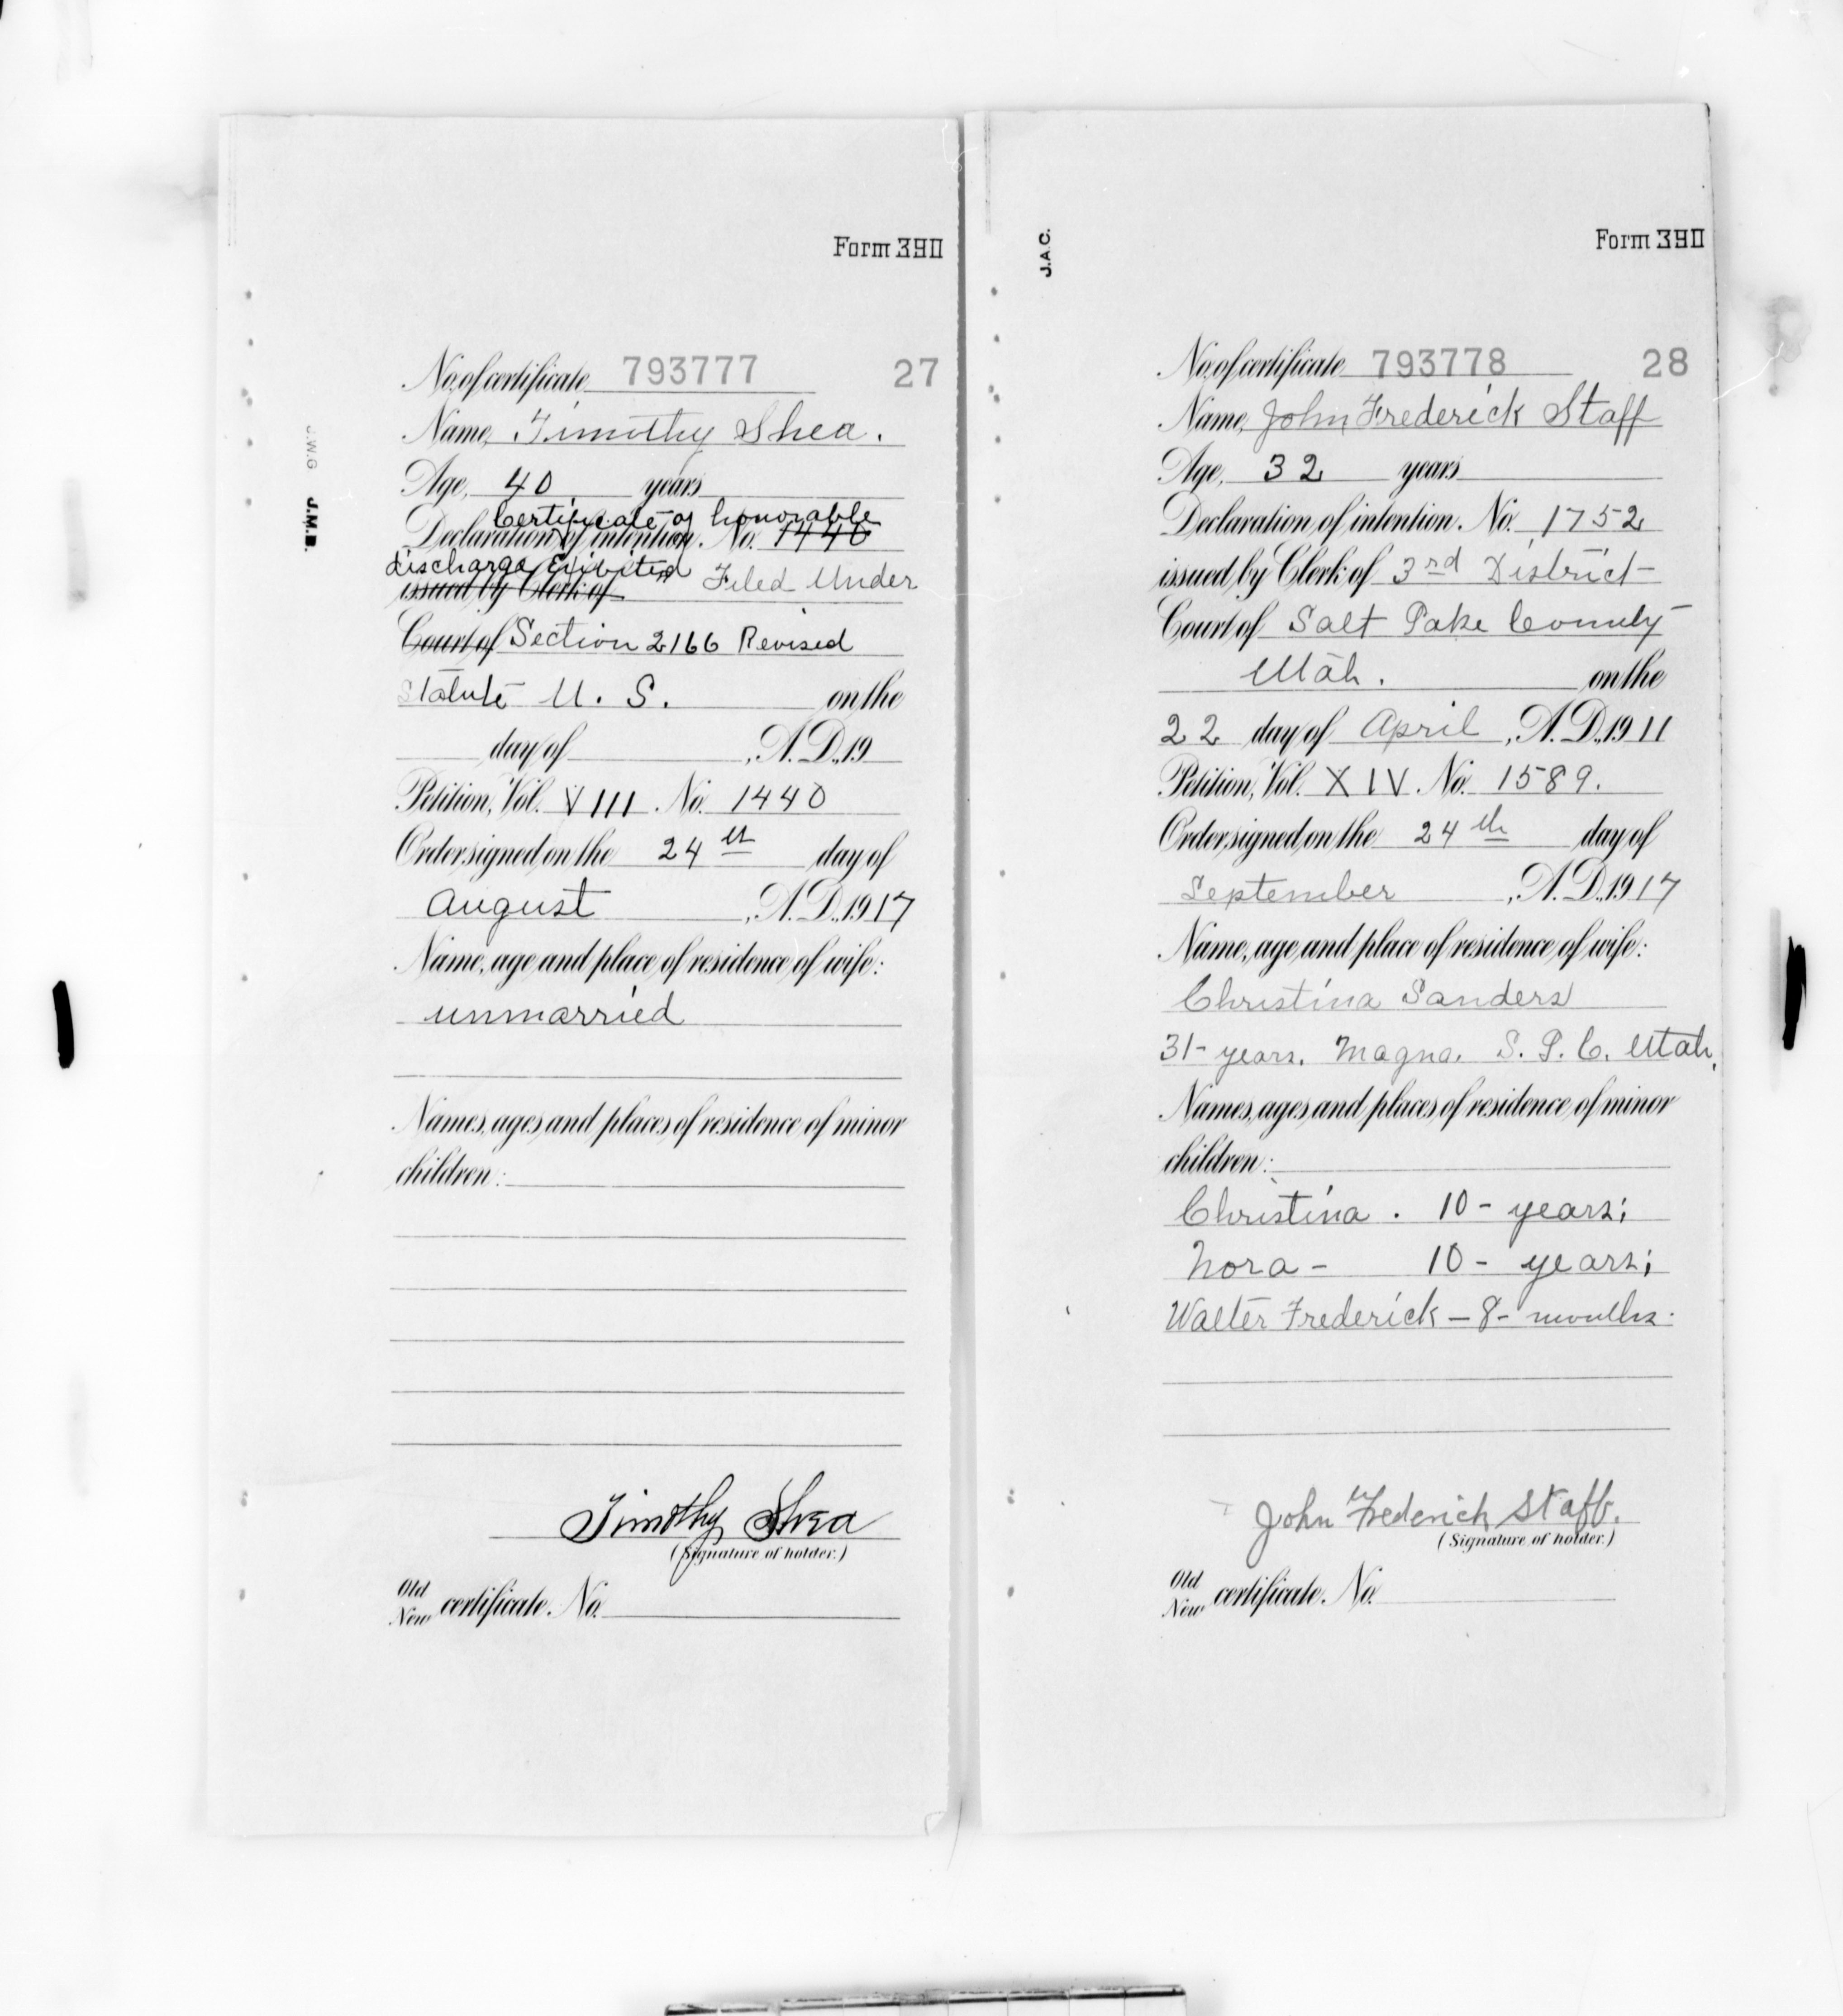 Form 390
J.W.G J.M.B.
No. of certificate 793777 27
Name, Timothy Shea.
Age, 40 years
Certificate of honorable
Declaration of intention. No. 1440
discharge Exibited
issued by Clerk of Filed Under
Court of Section 2166 Revised
Statute U. S. on the
day of , A. D., 19
Petition, Vol. VIII. No. 1440
Order signed on the 24th day of
August , A. D. 1917
Name, age and place of residence of wife:
unmarried
Names, ages and places of residence of minor
children:
Timothy Shea
(Signature of holder.)
Old
New certificate. No.
Form 390
J.A.C.
No. of certificate 793778 28
Name, John Frederick Staff
Age, 32 years
Declaration of intention. No. 1752
issued by Clerk of 3rd District
Court of Salt Lake County
Utah. on the
22 day of April , A. D., 1911
Petition, Vol. XIV. No. 1589.
Order signed on the 24th day of
September , A. D. 1917
Name, age and place of residence of wife:
Christina Sanders
31- years. Magna. S. L. C. Utah.
Names, ages and places of residence of minor
children:
Christina . 10 - years;
Nora - 10 - years;
Walter Frederick - 8 - months.
John Frederick Staff.
(Signature of holder.)
Old
New certificate. No.